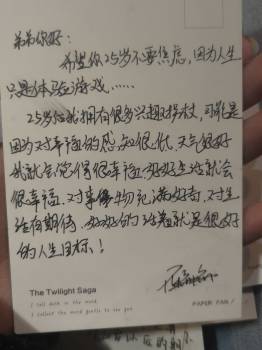 弟弟你好:
希望你25岁不要焦虑,因为人生
只是体验游戏……
25岁后我拥有很多兴趣,可能是
因为对幸福的感知很低,天气很好
我就会觉得很幸福,好好生活就会
很幸福,对事物充满好奇,对生
活有期待,好好的活着就是很好
的人生目标!
The Twilight Saga
PAPER FAN /